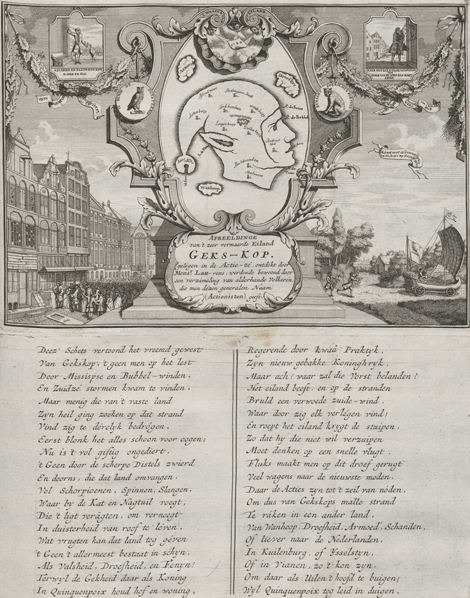 AFBEELDINGE
van't zeer vermaarde Eiland
GEKS-KOP.
gelegen in de Actie-zé, ontdekt door
Monsr. Lau-rens, werdende bewoond door
een verzameling van alderhande Volkeren,
die men dezen generalen Naam
(Actionisten) geeft.
Deez' Schets vertoond het vreemd gewest
Van Gekskop, 't geen men op het lest
Door Missisipse en Bubbel-winden,
En Zuidzé stormen kwam te vinden.
Maar menig die van 't vaste land
Zyn heil ging zoeken op dat strand
Vind zig te dérelyk bedrógen.
Eerst blonk het alles schoon voor oogen;
Nu is 't vol giftig ongediert,
't Geen door de scherpe Distels zwierd
En doorns, die dat land omvangen,
Vol Schorpioenen, Spinnen, Slangen,
Waar by de Kat en Nagtuil voegt,
Die 't ligt verägten, om vernoegt
In duisterheid van roof te léven.
Wat vrugten kan dat land tog géven
't Geen allermeest bestaat in schyn,
Als Valsheid, Droefheid, en Fenyn?
Terwyl de Gekheid daar als Koning
In Quinquenpoix houd hof en woning,
Regerende door kwaä Praktyk,
Zyn nieuw gebakke Koninghryk.
Maar ach! waar zal die Vorst belanden?
Het eiland beeft, en op de stranden
Bruld een verwoede zuide-wind,
Waar door zig elk verlégen vind;
En roept het eiland krygt de stuipen.
Zo dat hy die niet wil verzuipen
Moet denken op een snelle vlugt.
Fluks maakt men op dit droef gerugt
Veel wagens naar de nieuwste moden.
Daar de Actien zyn tot zeil van nóden.
Om dus van Gekskops malle strand
Te raken in een ander land,
Van Wanhoop, Droefheid, Armoed, Schanden,
Of liever naar de Nederlanden.
In Kuilenburg, of Ysselstyn,
Of in Vianen, zo 't kon zyn.
Om daar als Uilen 't hoofd te buigen;
Wyl Quinquenpoix tog leid in duigen.